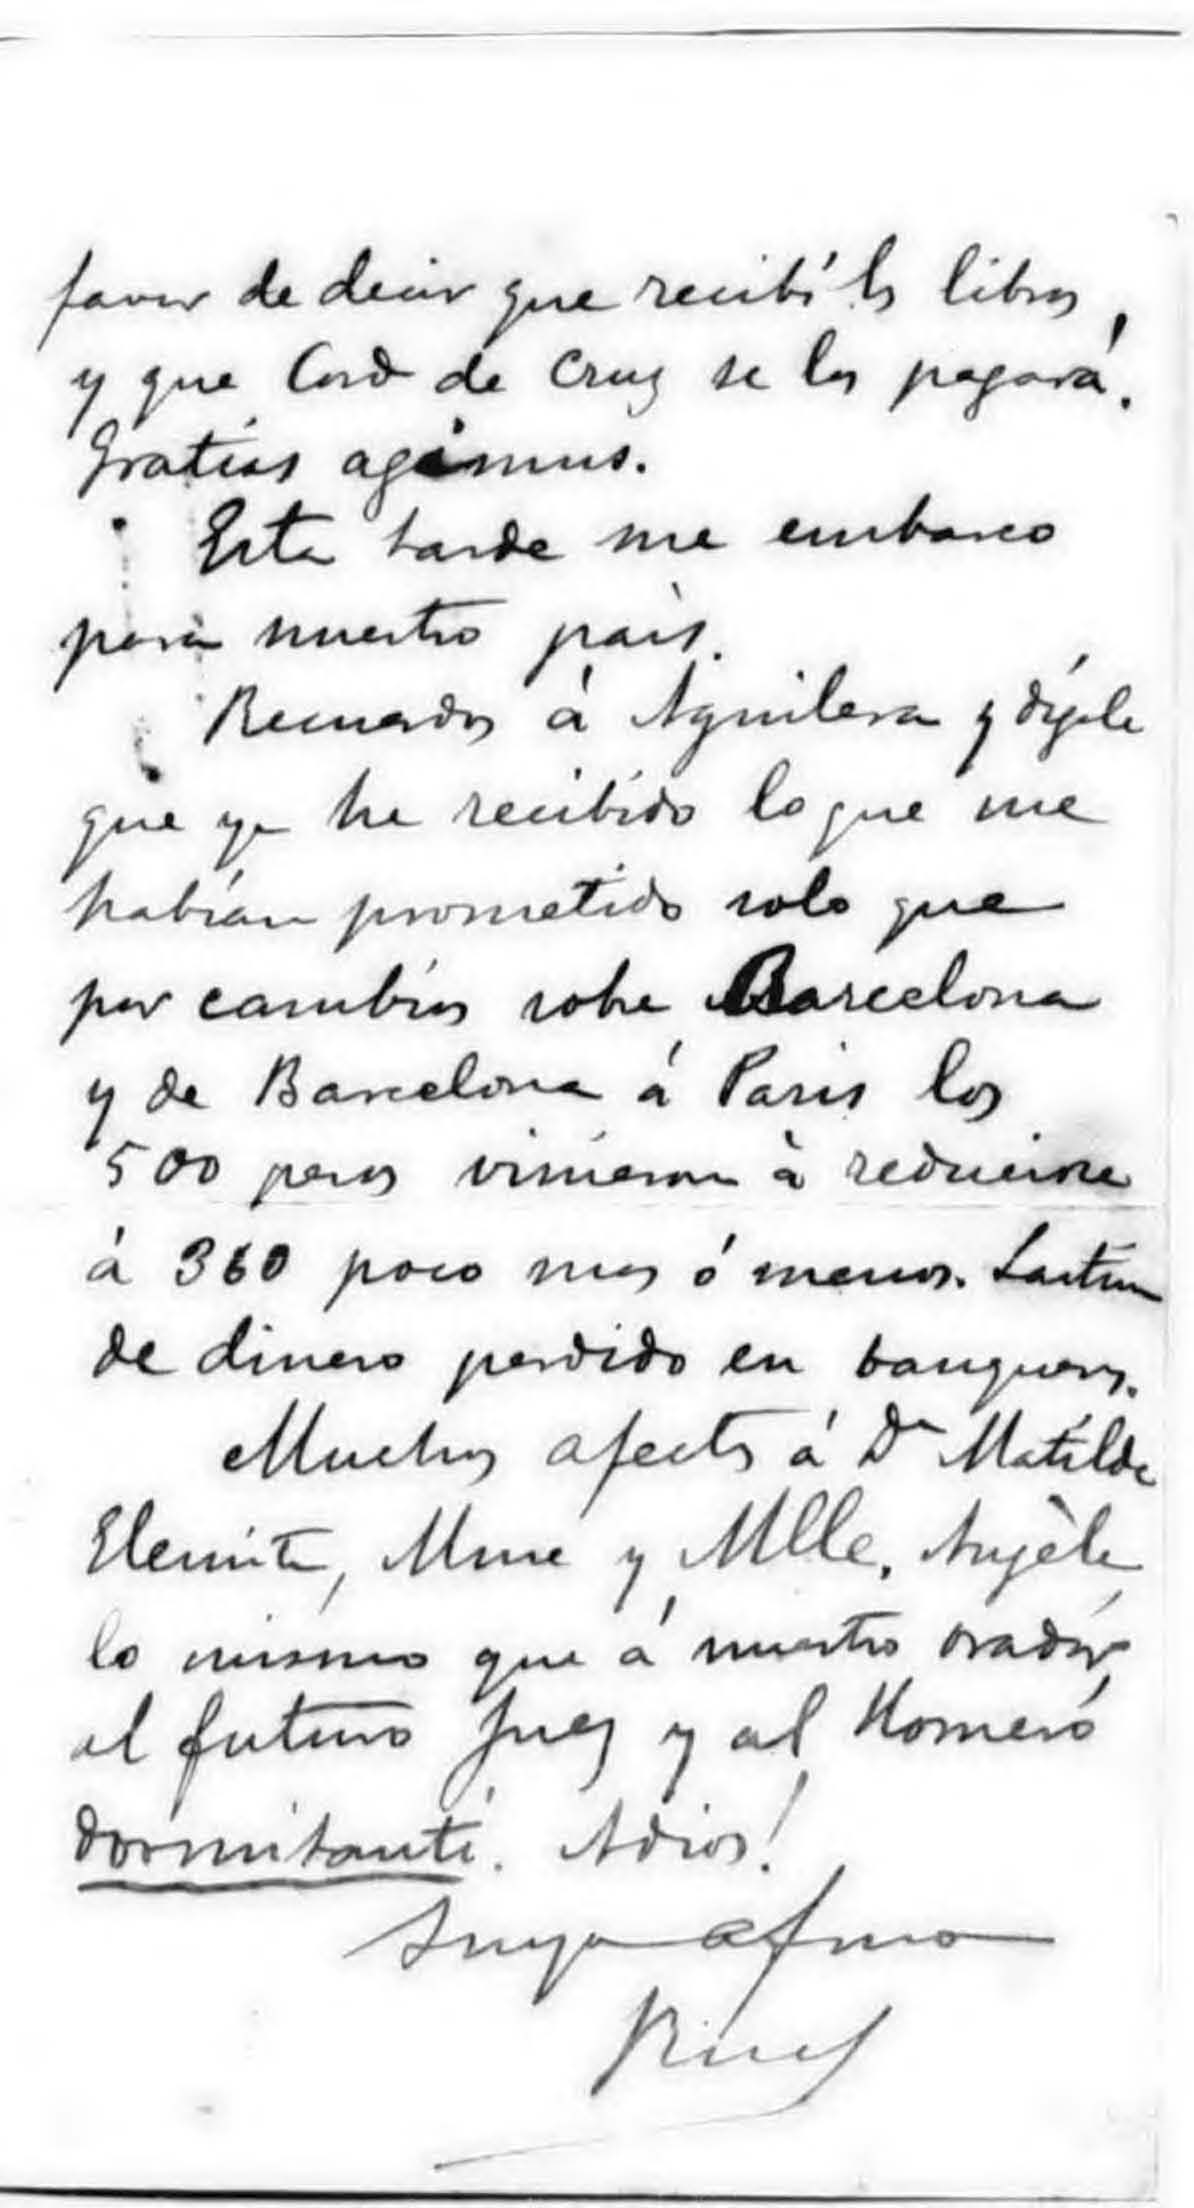 favor de decir que recibí los libros,
y que Cord de Cruz se los pagará.
Gratias agimus.
Esta tarde me embarco
para nuestro país.
Recuerdos á Aguilera y dígale
que ya he recibido lo que me
habían prometido solo que
por cambios sobre Barcelona
y de Barcelona á Paris los
500 pesos vinieron à reducirse
á 360 poco mas ó menos. Lástima
de dinero perdido en banqueros.
Muchos afectos á Da Matilde
Elenita, Mme y Mlle. Angèle
lo mismo que á nuestro orador,
al futuro Juez y al Homero
dormitante. Adios!
Suyo afmo
Rizal